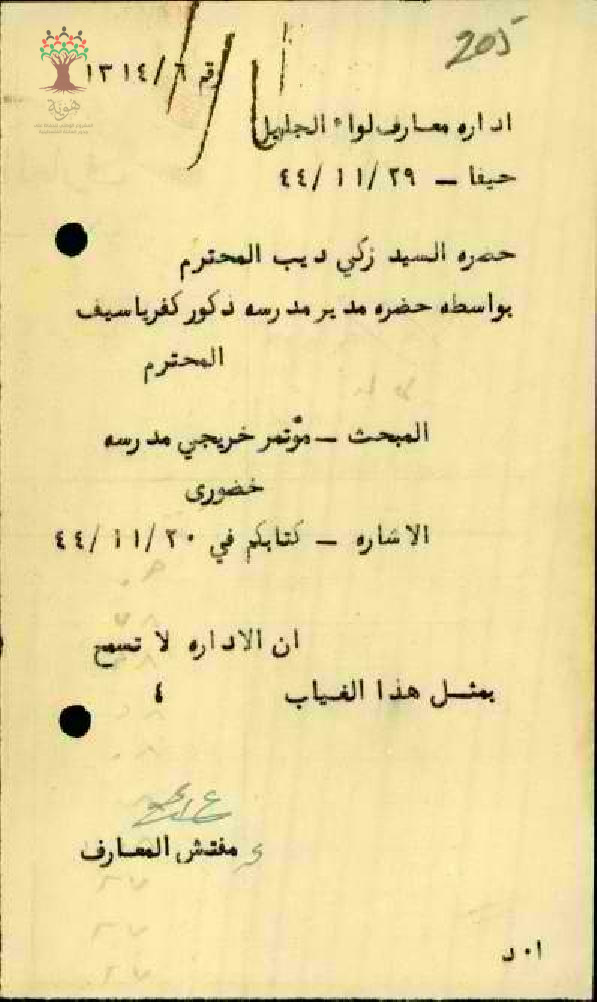 205
هوية
رقم ١٣١٤/٦
اداره معارف لواء الجليل
حيفا – ٢٩/ ١١/ ٤٤
حضره السيد زكي ديب المحترم
بواسطه حضره مدير مدرسه ذكور كفرياسيف
المحترم
المبحث – مؤتمر خريجي مدرسه
خضورى
الاشاره – كتابكم في ٢٠/ ١١/ ٤٤
ان الاداره لا تسمح
بمثل هذا الغياب ٤
مفتش المعارف
ا٠د